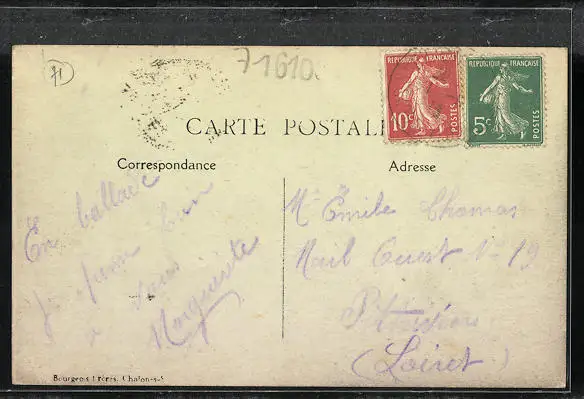 71
71610.
RÉPUBLIQUE FRANÇAISE
10c
POSTES
RÉPUBLIQUE FRANÇAISE
5c
POSTES
CARTE POSTAL
Correspondance
Adresse
En ballade
je pense bien
à vous
Marguerite
Mr Émile Thomas
Mail Ouest N° 19
Pithiviers
(Loiret)
Bourgeois Frères, Chalons-s